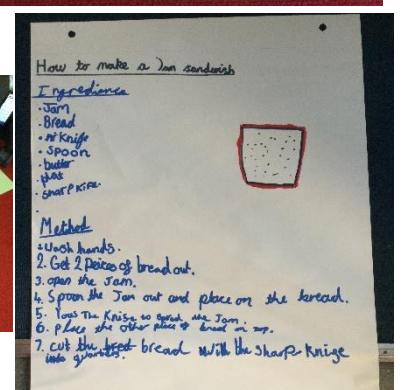 How to make a Jam sandwish
Ingredience
• Jam
• Bread
• Knife
• Spoon
• butter
• plat
• sharp kife.
Method
1. Wash hands.
2. Get 2 Peices of bread out.
3. open the Jam.
4. Spoon the Jam out and place on the bread.
5. The Knise to Spread the Jam.
6. Place the other piece of bread on top.
7. cut the bread with the sharp Knige
into quarters.